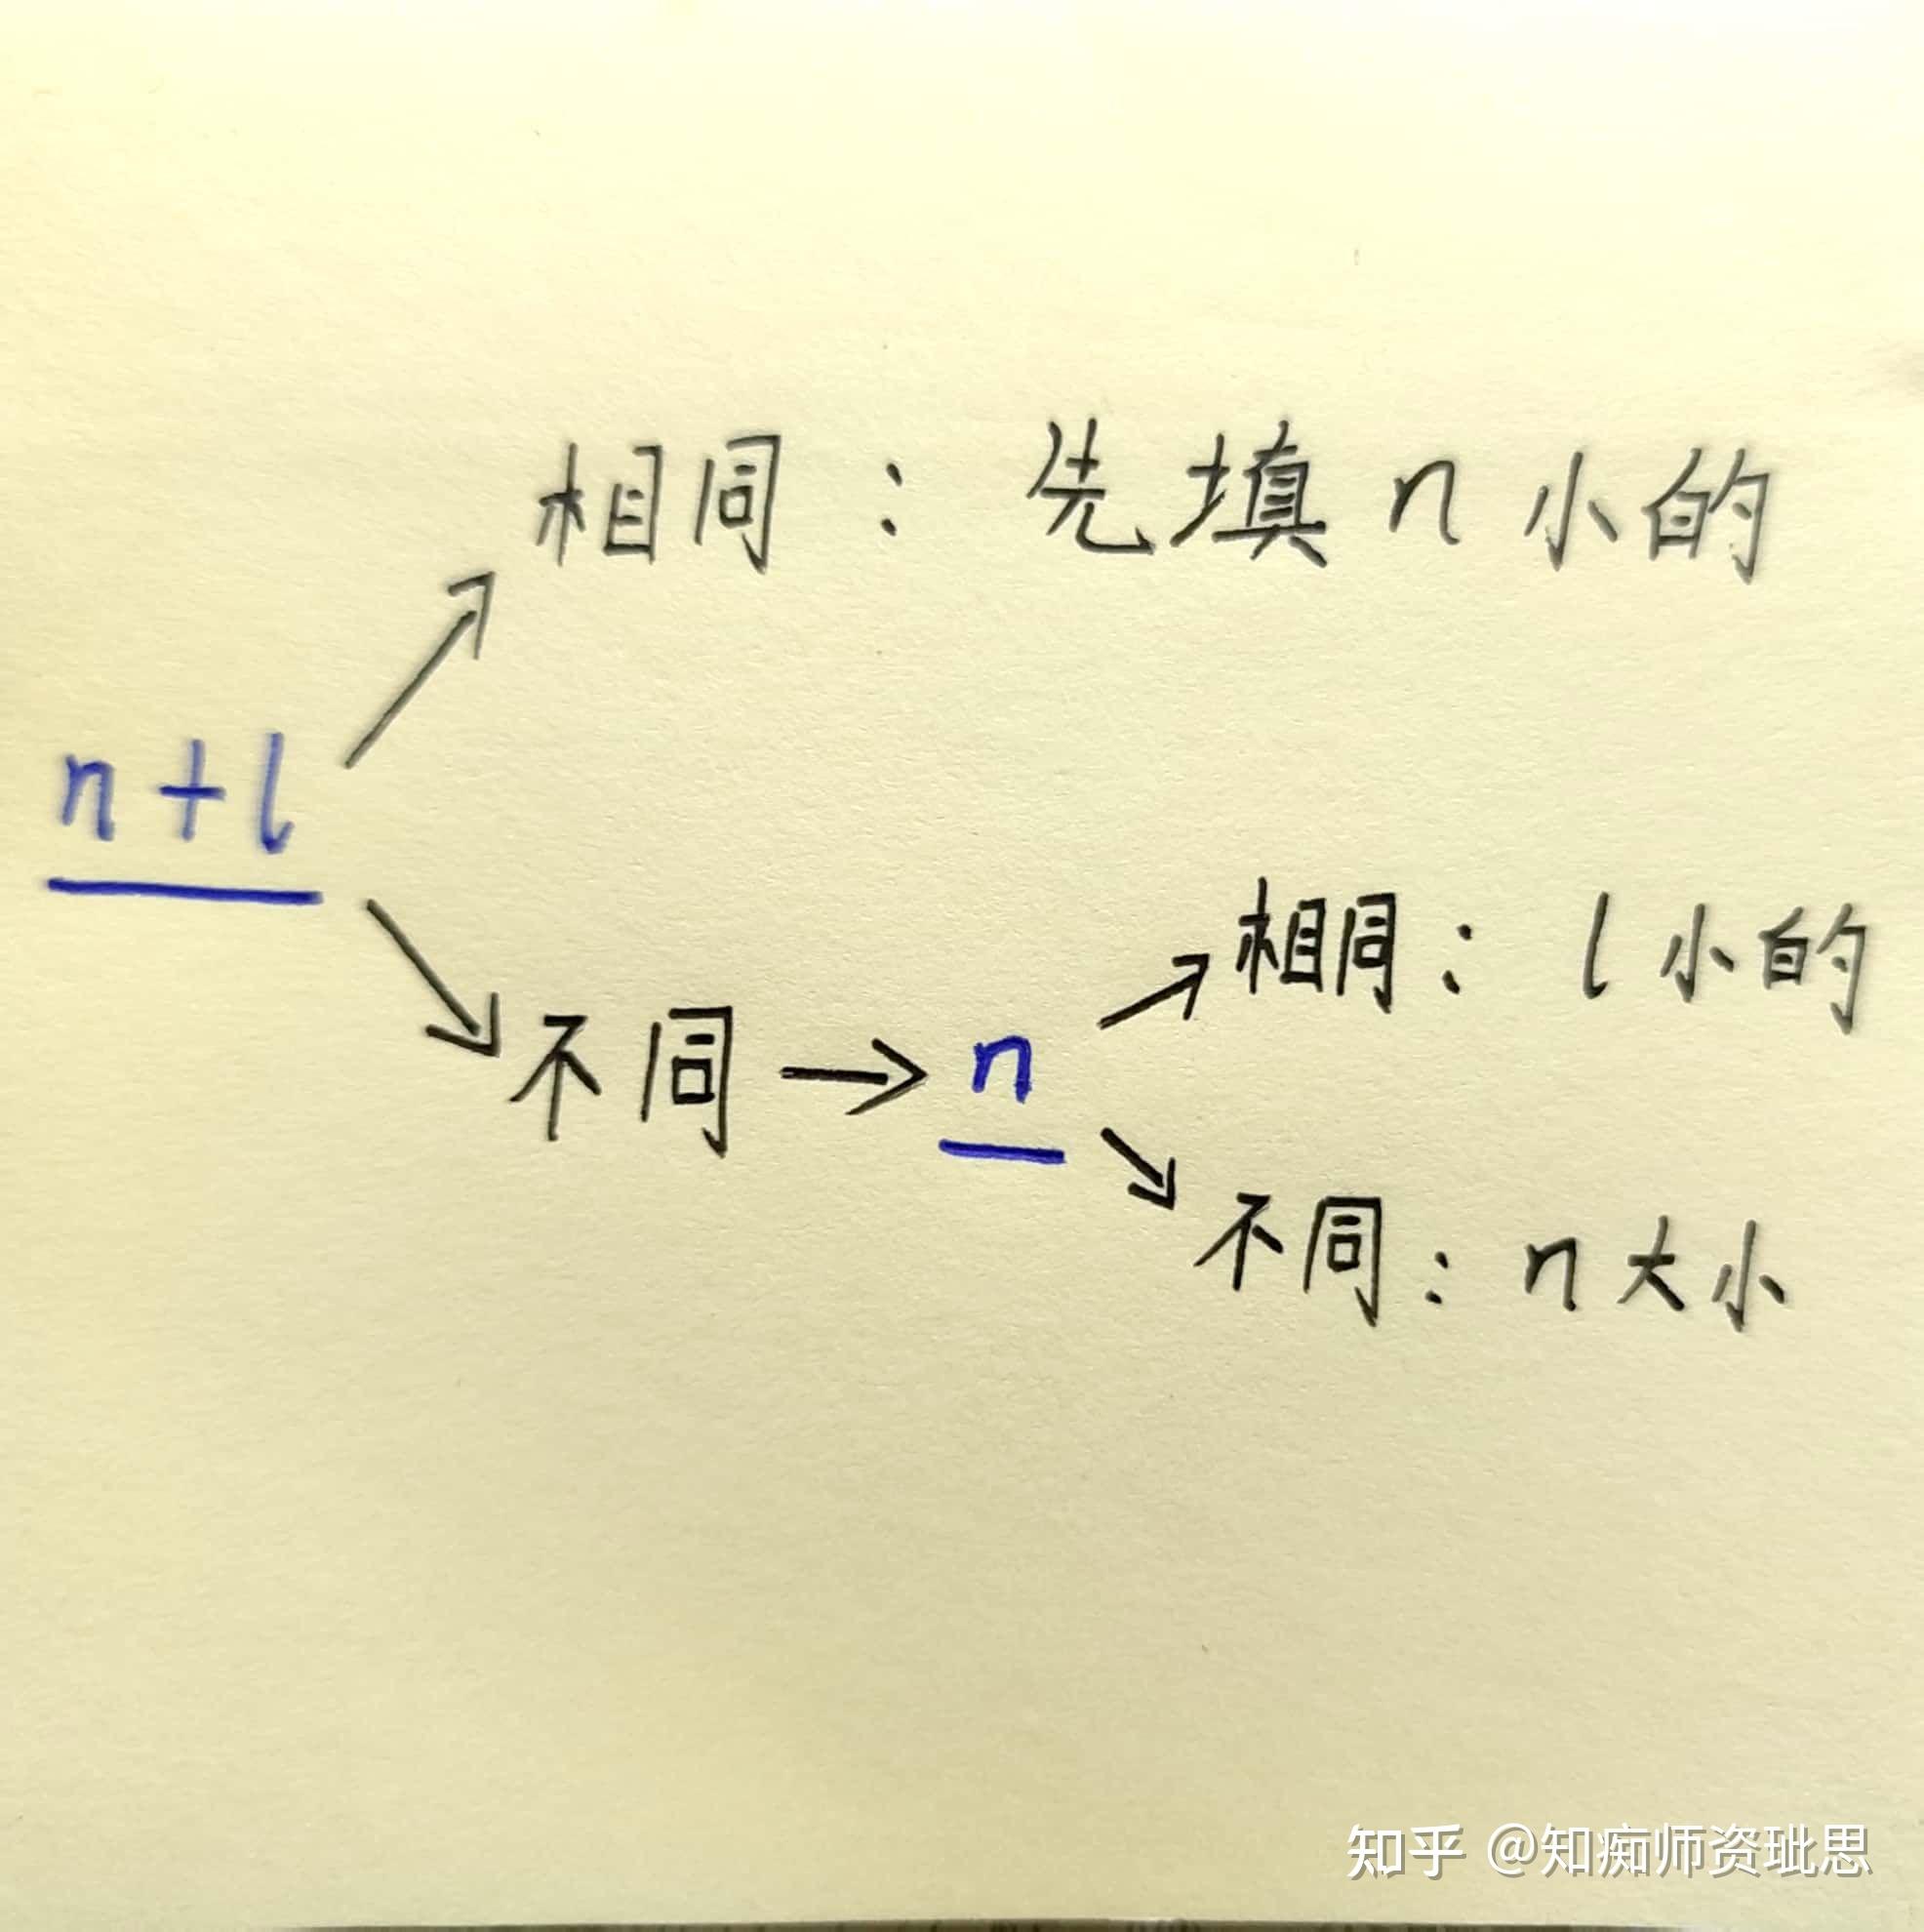 相同：先填n小的
n+l
相同：l小的
不同→n
不同：n大小
知乎 @知痴师资玭思